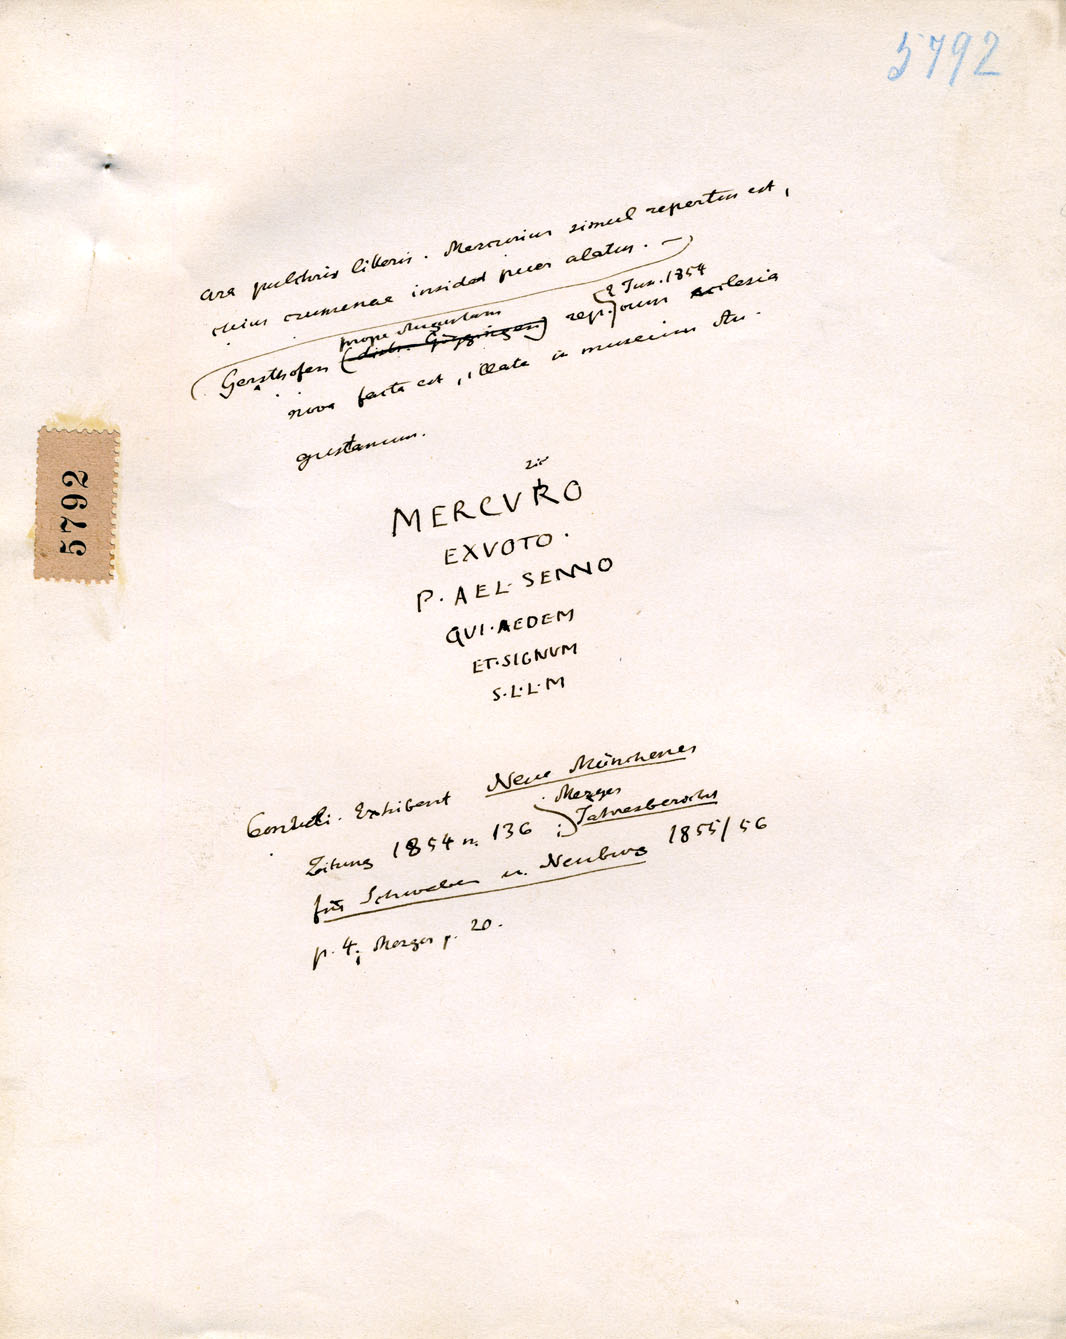 5792
ara pulchris litteris. Mercurius simul repertus est,
cuius crumenae insidet puer alatus. —
prope Augustam
2 Jun. 1854
Gersthofen (distr. Göggingen) rep. quum ecclesia
nova facta est, illata in museum Au-
gustanum.
5792
sic
MERCVRO
EX VOTO ·
P · AEL · SENNO
QVI · AEDEM
ET · SIGNVM
S · L · L · M
Contuli. Exhibent Neue Münchener
Mezger
Zeitung 1854 n. 136; Jahresbericht
für Schwaben u. Neuburg 1855/56
p. 4; Mezger p. 20.